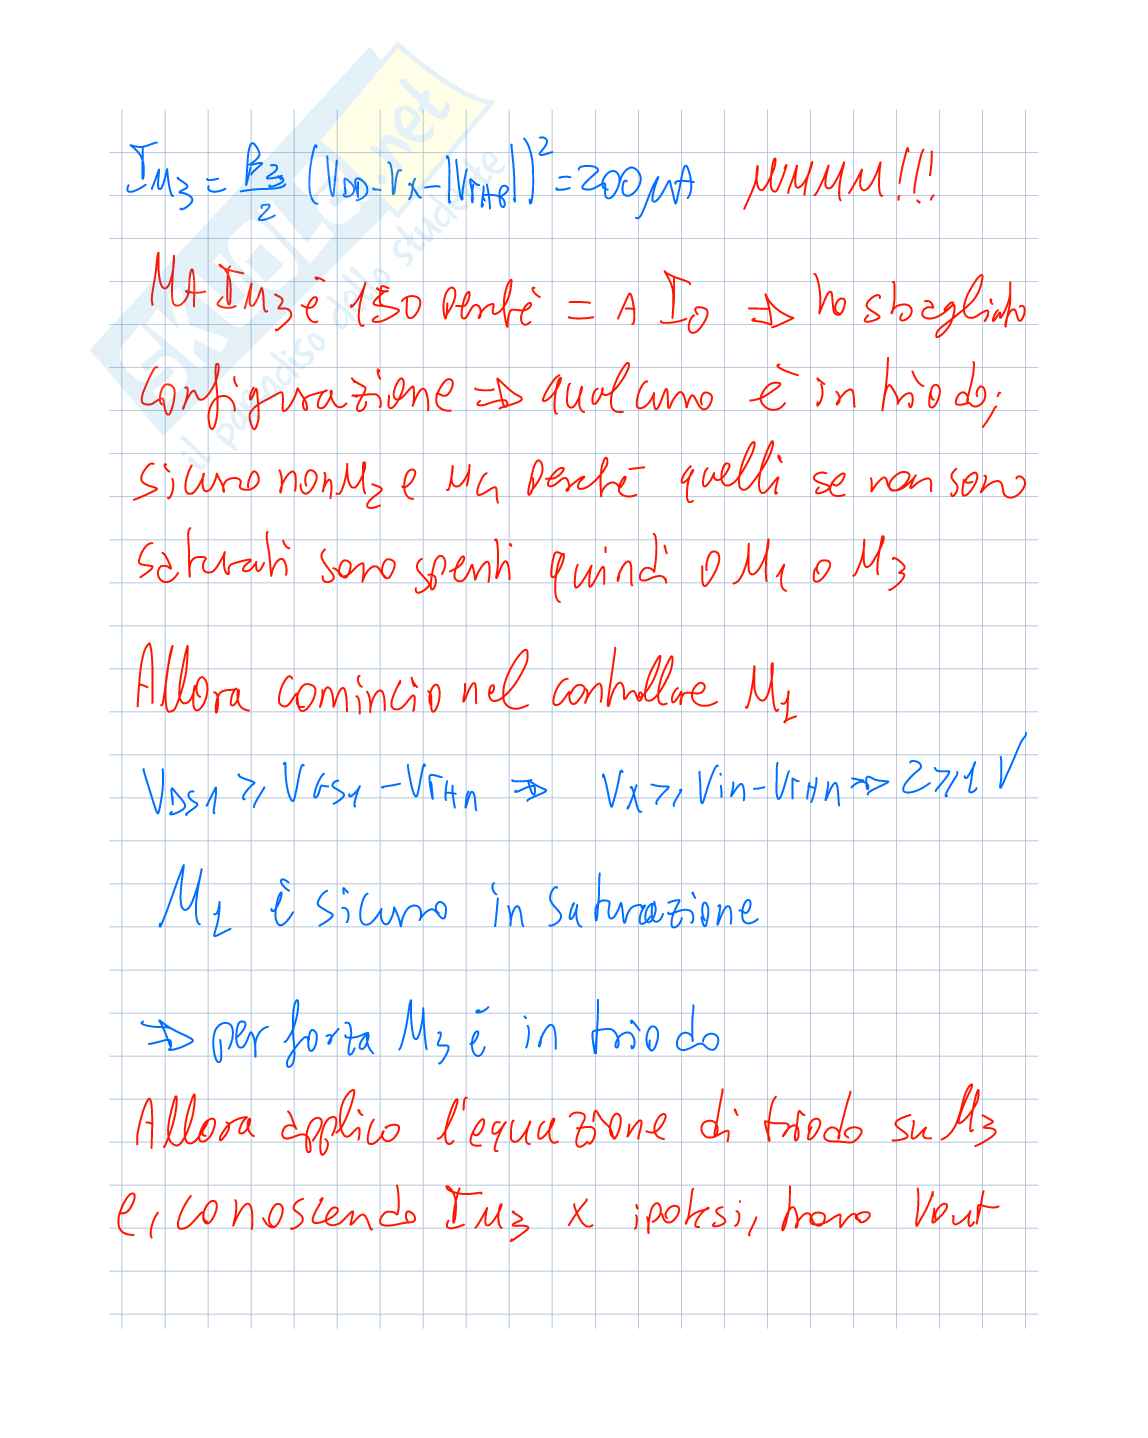 I_M3 = β3/2 (VDD - Vx - |VTHP|)² = 200 μA MMMM!!!
MA IM3 è 150 perché = A I0 ⇒ ho sbagliato
configurazione ⇒ qualcuno è in triodo;
sicuro non M2 e M4 perché quelli se non sono
saturati sono spenti quindi o M1 o M3
Allora comincio nel controllare M1
VDS1 ≥ VGS1 - VTHn ⇒ Vx ≥ Vin - VTHn ⇒ 2 ≥ 1 √
M1 è sicuro in saturazione
⇒ per forza M3 è in triodo
Allora applico l'equazione di triodo su M3
e, conoscendo IM3 x ipotesi, trovo Vout
SKUOLA.net
il paradiso dello studente